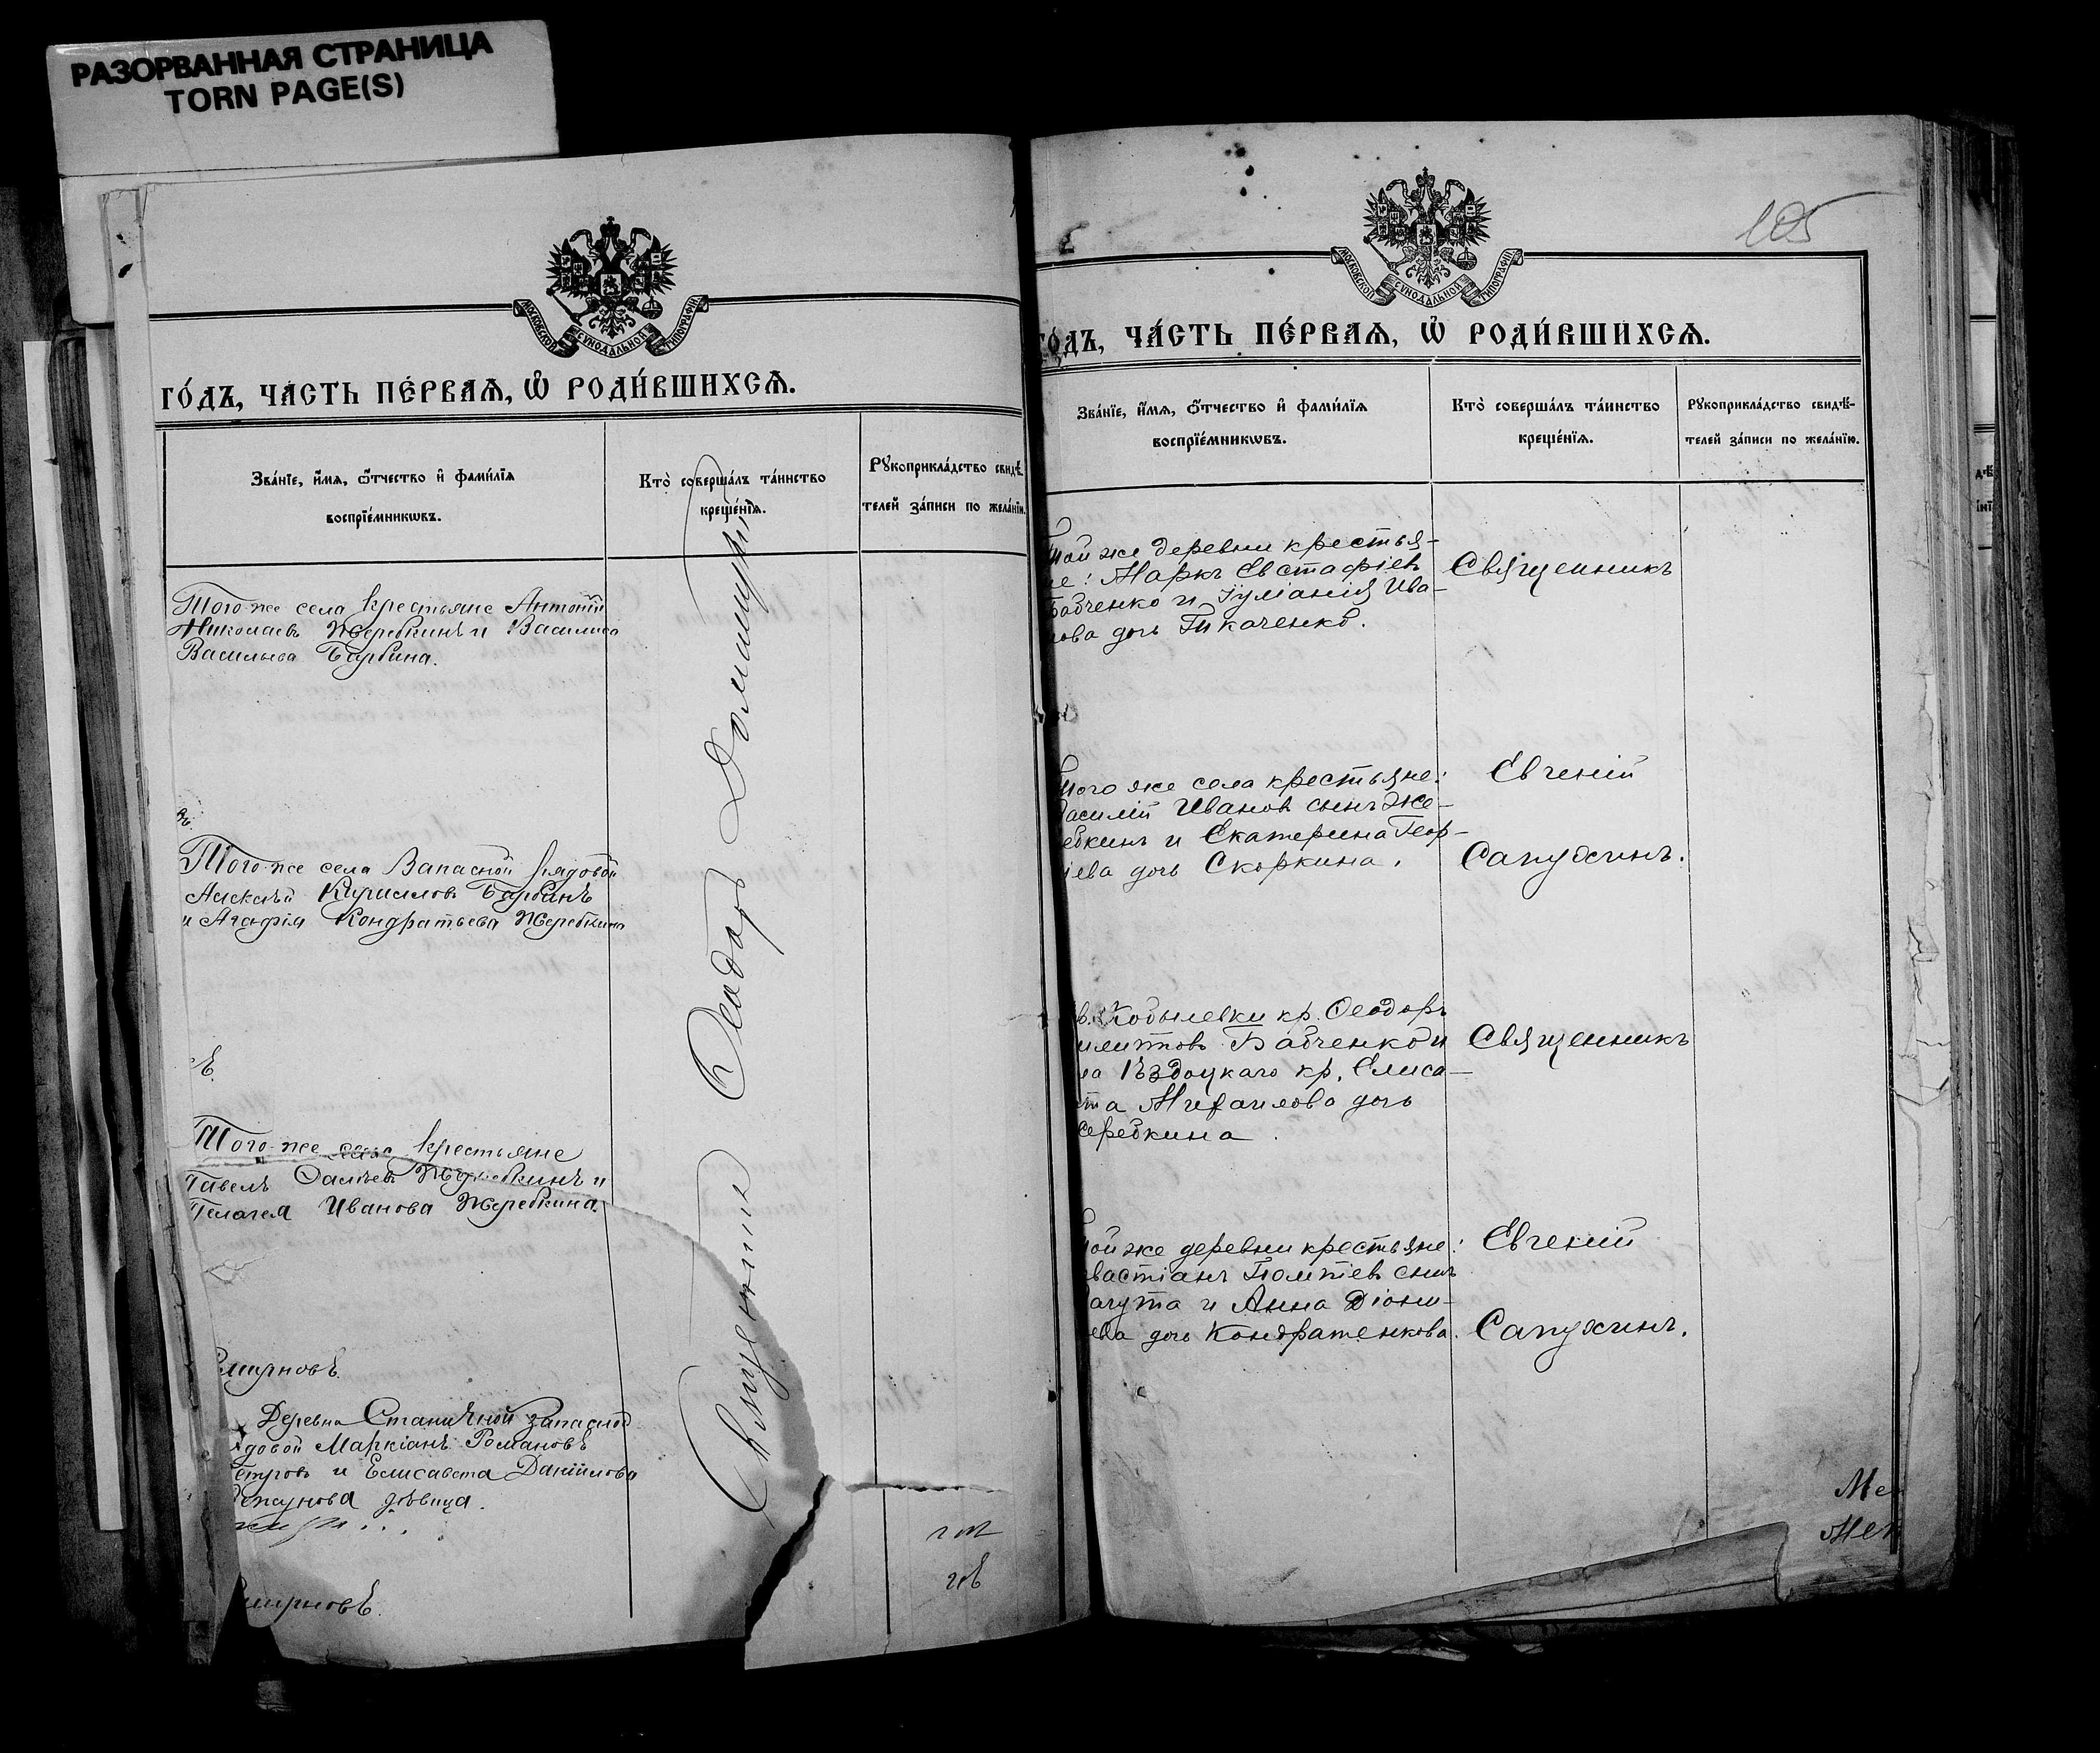 РАЗОРВАННАЯ СТРАНИЦА
TORN PAGE(S)
МОСКОВСКОЙ СѴНОДАЛЬНОЙ ТИПОГРАФІИ
ГО́ДЪ, ЧА́СТЬ ПЕ́РВАѦ, Ѽ РОДИ́ВШИХСѦ.
Зва́нїе, и҆́мѧ, ѻ҆́тчество и҆ фами́лїѧ
воспрїе́мникѡвъ.
Кто̀ соверша́лъ та́инство
креще́нїѧ.
Рꙋкоприкла́дство свидѣ́-
телей за́писи по жела́нїю.
Того-же села крестьяне Антоній
Николаевъ Жеребкинъ и Василиса
Васильева Барбина.
Того-же села Запасной рядовой
Алексѣй Кирилловъ Барбинъ
и Агафія Кондратьева Жеребкина
Того-же села крестьяне
Павелъ Жеребкинъ и
Пелагея Иванова Жеребкина.
Смирновъ.
Деревни Станичной запасной
рядовой Маркіанъ Романовъ
Петровъ и Елисавета Даніилова
дѣвица.
Смирновъ.
Священникъ Ѳеодоръ
105
МОСКОВСКОЙ СѴНОДАЛЬНОЙ ТИПОГРАФІИ
ГО́ДЪ, ЧА́СТЬ ПЕ́РВАѦ, Ѽ РОДИ́ВШИХСѦ.
Зва́нїе, и҆́мѧ, ѻ҆́тчество и҆ фами́лїѧ
воспрїе́мникѡвъ.
Кто̀ соверша́лъ та́инство
креще́нїѧ.
Рꙋкоприкла́дство свидѣ́-
телей за́писи по жела́нїю.
той же деревни крестья-
не: Маркъ Евстафіев
Бабченко и Іуліанія Ива-
нова дочь Ткаченко.
Священникъ
того же села крестьяне:
Василій Иванов сынъ Же-
ребкинъ и Екатерина Геор-
гіева дочь Скоркина.
Евгеній
Сапухинъ.
в. Кобылевки кр. Ѳеодоръ
Бабченко и
ла Ѣздоцкаго кр. Елиса-
вета Михаилова дочь
Жеребкина.
Священникъ
той же деревни крестьяне:
Севастіанъ сынъ
и Анна Діони-
сіева дочь Кондратенкова.
Евгеній
Сапухинъ.